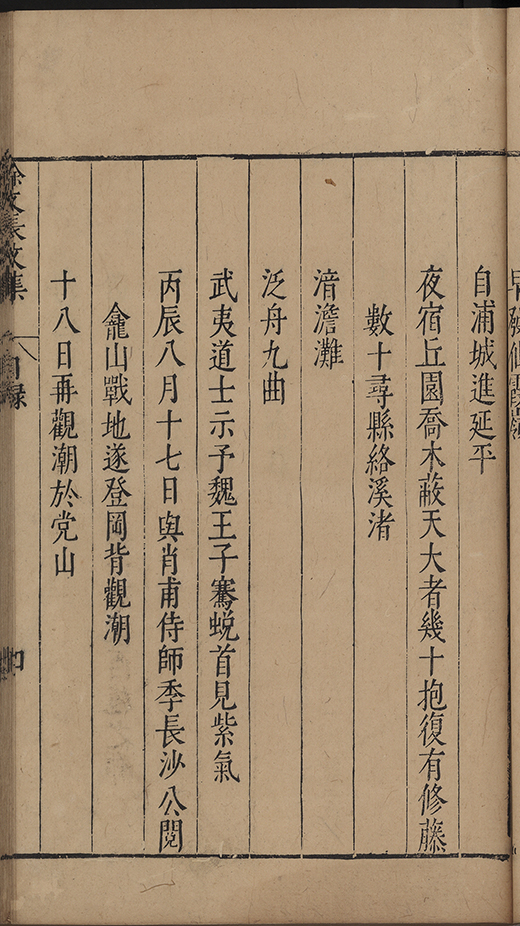 自浦城進延平
夜宿丘園喬木蔽天大者幾十抱復有修藤
數十尋縣絡溪渚
湇澹灘
泛舟九曲
武夷道士示予魏王子騫蛻首見紫氣
丙辰八月十七日與肖甫侍師季長沙公閱
龕山戰地遂登岡背觀潮
十八日再觀潮於党山
徐文長文集
目録